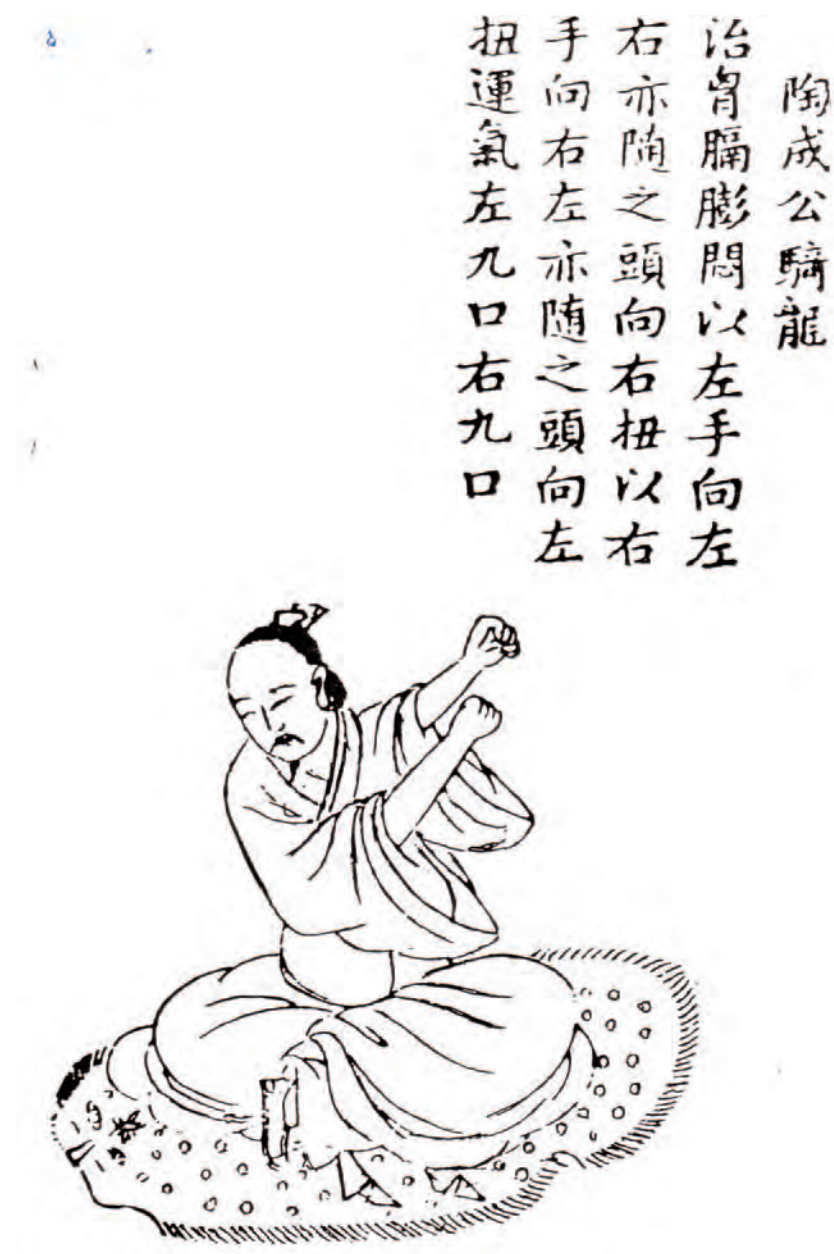 陶成公騎龍
治胷膈膨悶以左手向左
右亦随之頭向右扭以右
手向右左亦随之頭向左
扭運氣左九口右九口